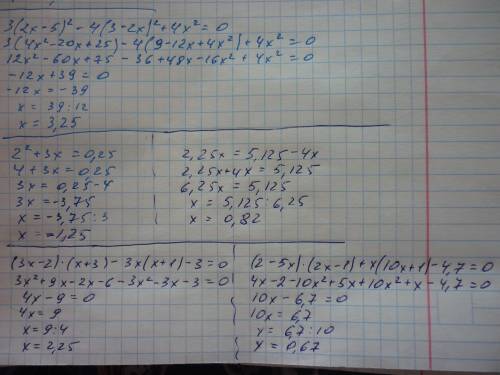 3(2x-5)² - 4(3-2x)² + 4x² = 0
3(4x²-20x+25) - 4(9-12x+4x²) + 4x² = 0
12x² - 60x + 75 - 36 + 48x - 16x² + 4x² = 0
-12x + 39 = 0
-12x = -39
x = 39 : 12
x = 3,25
2² + 3x = 0,25
4 + 3x = 0,25
3x = 0,25 - 4
3x = -3,75
x = -3,75 : 3
x = -1,25
2,25x = 5,125 - 4x
2,25x + 4x = 5,125
6,25x = 5,125
x = 5,125 : 6,25
x = 0,82
(3x-2)·(x+3) - 3x(x+1) - 3 = 0
3x² + 9x - 2x - 6 - 3x² - 3x - 3 = 0
4x - 9 = 0
4x = 9
x = 9 : 4
x = 2,25
(2-5x)·(2x-1) + x(10x+1) - 4,7 = 0
4x - 2 - 10x² + 5x + 10x² + x - 4,7 = 0
10x - 6,7 = 0
10x = 6,7
x = 6,7 : 10
x = 0,67